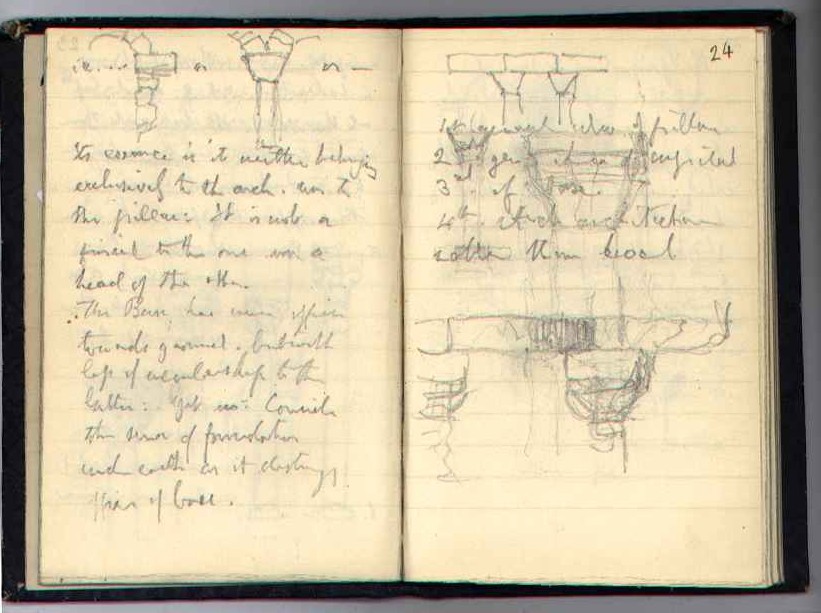 i.e. . . or or —
Its essence is it neither belongs
exclusively to the arch. nor to
the pillar: It is not a
to the one nor a
head of the other.
The Base has same office
towards ground. but with
less of to the
latter: yet no: Consider
the of foundation
and earth as it
office of base.
24
1st general idea of pillar
2nd gen of capital
3rd of base.
4th Arch architecture
rather than